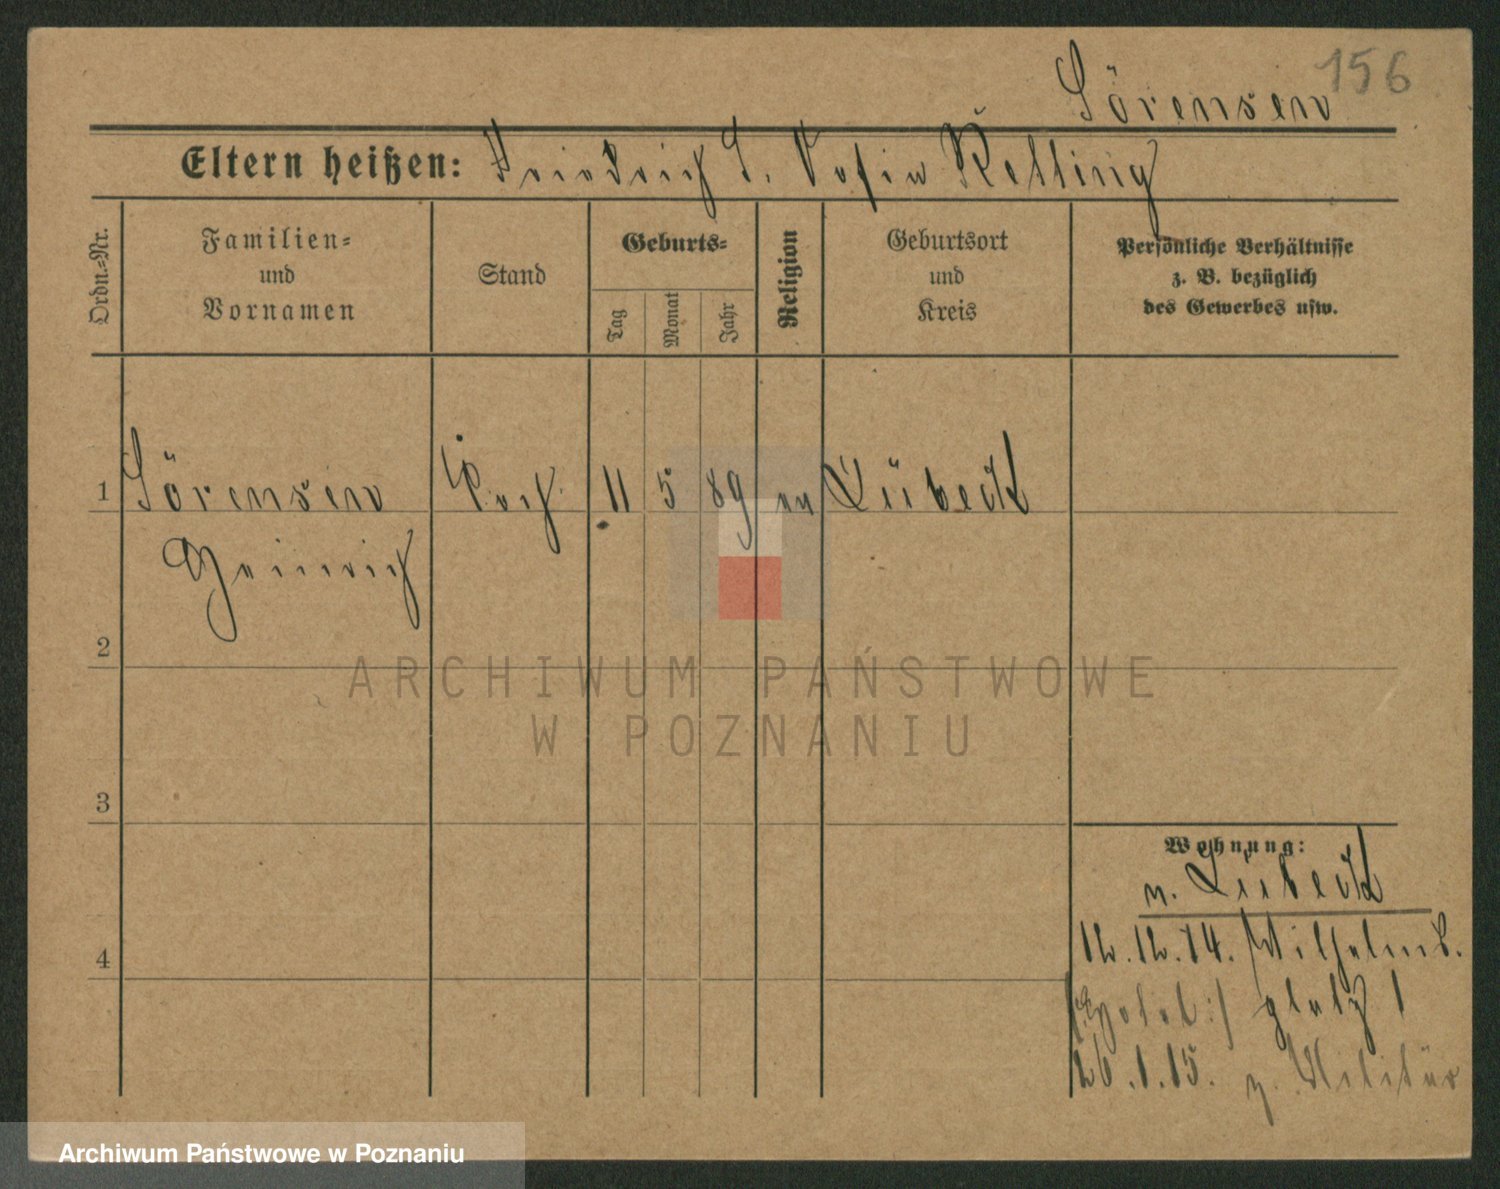 156
Sörensen
Eltern heißen: Friedrich S. Sofie Relling
Ordn.-Nr.
Familien-
und
Vornamen
Stand
Geburts-
Tag
Monat
Jahr
Religion
Geburtsort
und
Kreis
Persönliche Verhältnisse
z. B. bezüglich
des Gewerbes usw.
1 Sörensen Koch 11 5 89 ev Lübeck
Heinrich
2
3
4
Wohnung:
v. Lübeck
12.12.14. Wilhelms.
/:Hotel:/ platz 1
20.1.15. z. Militär
ARCHIWUM PAŃSTWOWE
W POZNANIU
Archiwum Państwowe w Poznaniu